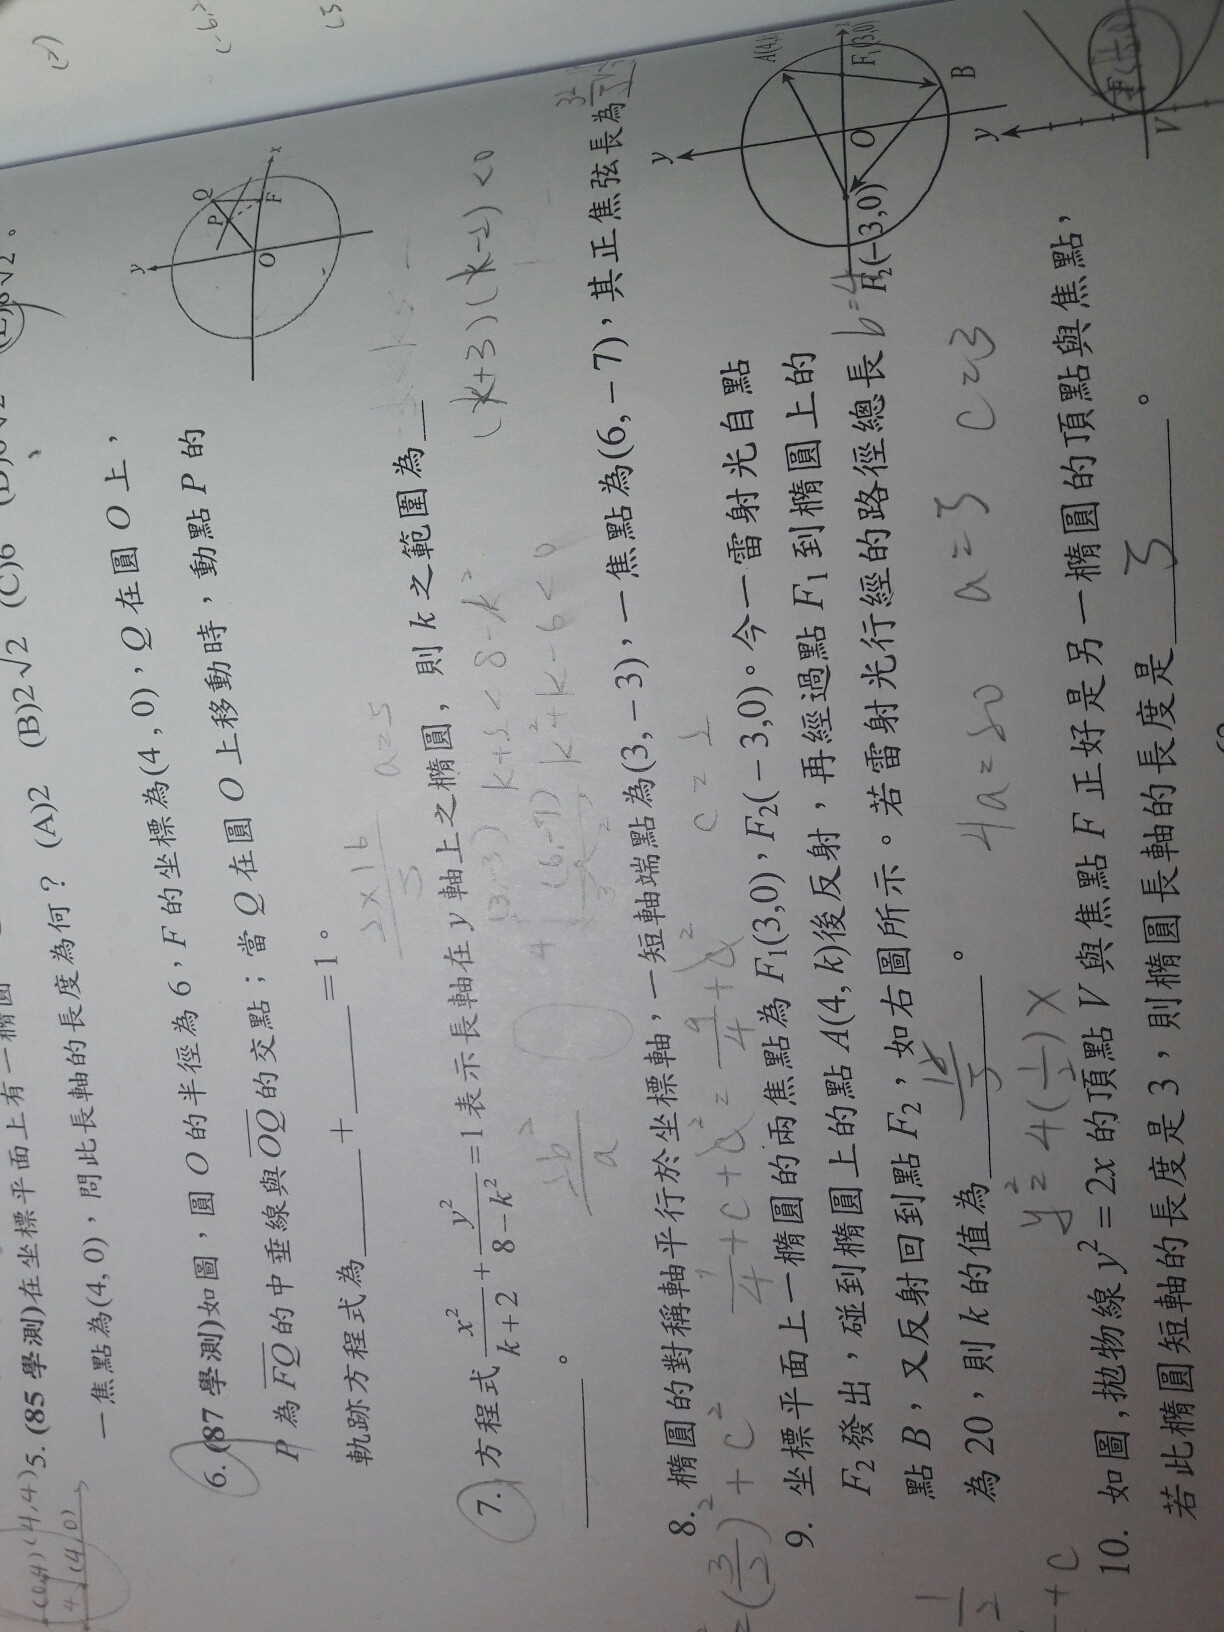 5. (85 學測)在坐標平面上有一橢圓
一焦點為(4, 0)，問此長軸的長度為何？ (A)2 (B)2√2 (C)6
6. (87 學測)如圖，圓 O 的半徑為 6，F 的坐標為(4, 0)，Q 在圓 O 上，
P 為 FQ 的中垂線與 OQ 的交點；當 Q 在圓 O 上移動時，動點 P 的
軌跡方程式為____+____=1。
y
Q
P
x
O
F
2×16
5
a=5
7. 方程式 x²/(k+2) + y²/(8−k²) = 1 表示長軸在 y 軸上之橢圓，則 k 之範圍為__
____。
k+2<8-k²
k²+k-6<0
(k+3)(k-2)<0
(6,-7)
8. 橢圓的對稱軸平行於坐標軸，一短軸端點為(3, −3)，一焦點為(6, −7)，其正焦弦長為
9. 坐標平面上一橢圓的兩焦點為 F₁(3,0)，F₂(−3,0)。今一雷射光自點
F₂ 發出，碰到橢圓上的點 A(4, k)後反射，再經過點 F₁ 到橢圓上的
點 B，又反射回到點 F₂，如右圖所示。若雷射光行經的路徑總長
為 20，則 k 的值為____。
y
F₁(3,0)
O
B
F₂(−3,0)
b=4
4a=20 a=5 c=3
y²=4(1/2)x
10. 如圖，拋物線 y²=2x 的頂點 V 與焦點 F 正好是另一橢圓的頂點與焦點，
若此橢圓短軸的長度是 3，則橢圓長軸的長度是____。
y
V